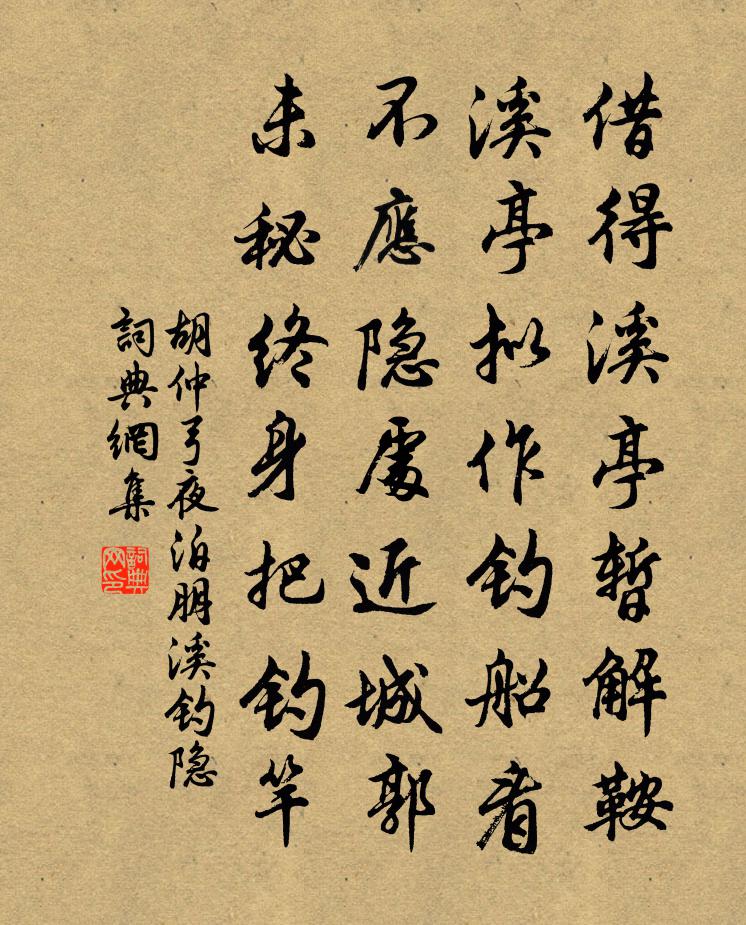 借得溪亭暫解鞍
溪亭拟作钓船看
不應隐處近城郭
未秘终身把钓竿
胡仲弓夜泊朋溪钓隐
詞典網集
詞典網印